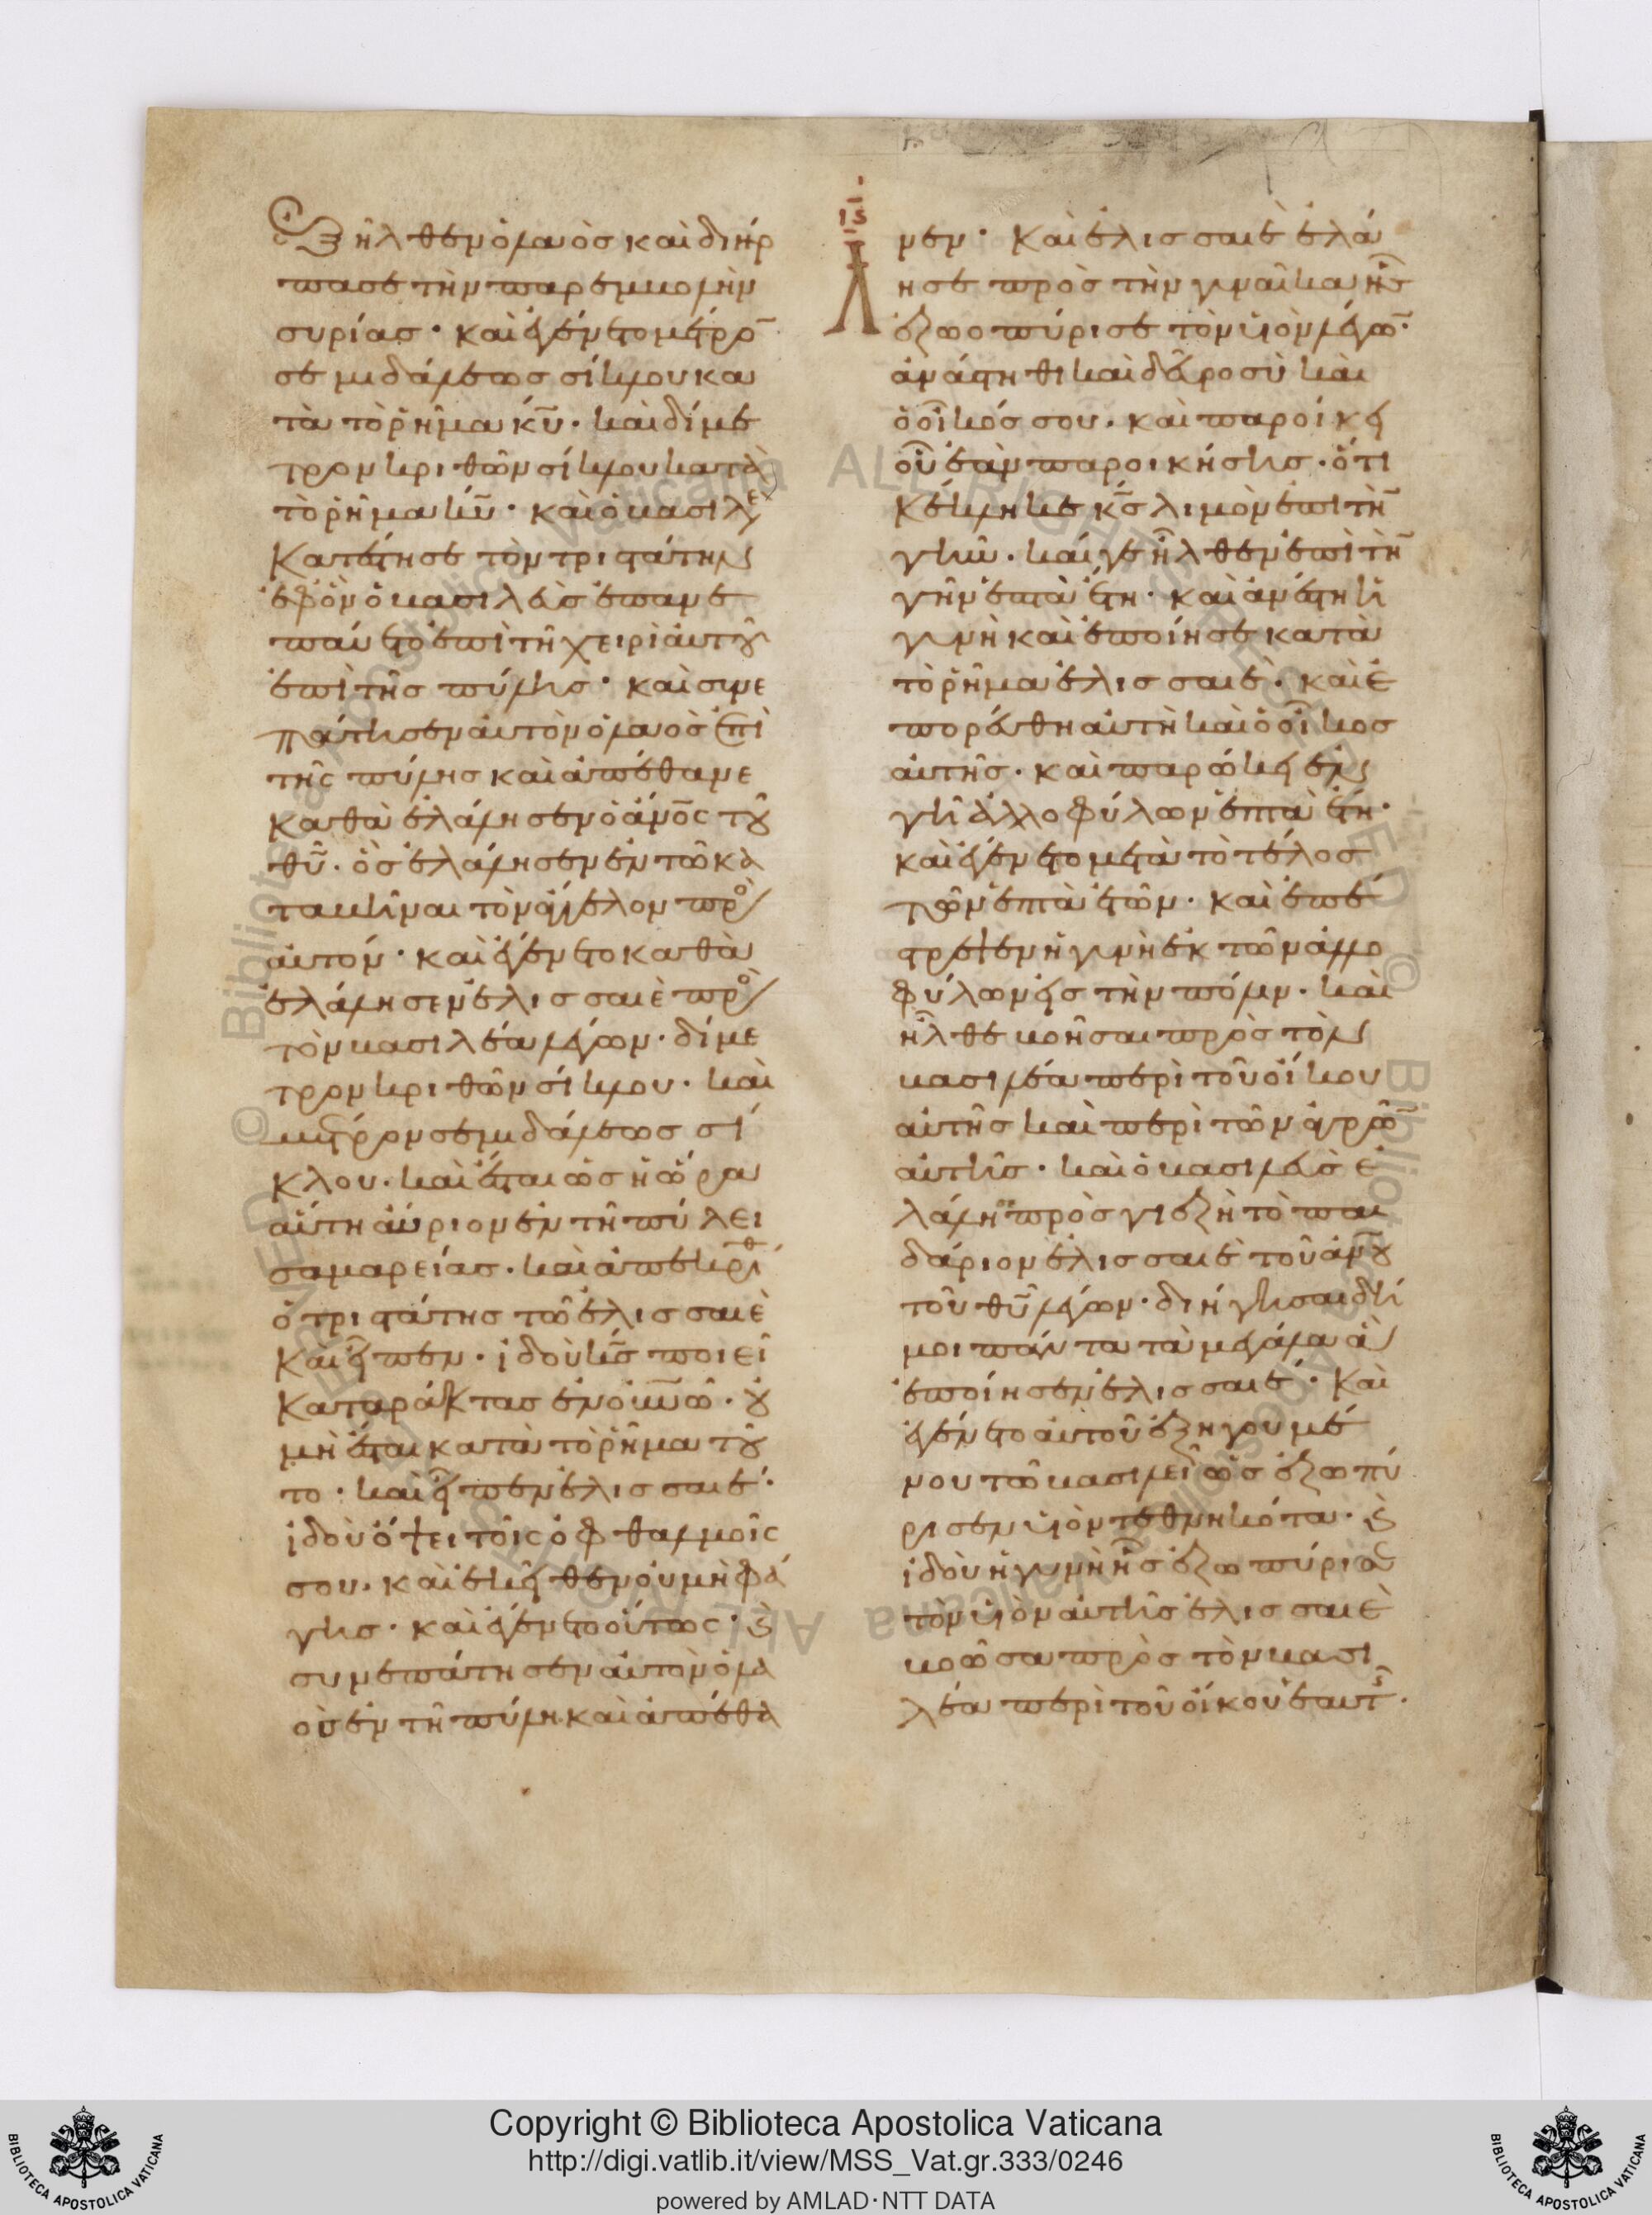 Ἐξῆλθεν ὁ λαὸς καὶ διήρ
πασε τὴν παρεμβολὴν
συρίας· καὶ ἐγένετο μέτρο̅
σεμιδάλεως σίκλου κα
τὰ τὸ ῥῆμα κ̅υ̅· καὶ δίμε
τρον κριθῶν σίκλου κατὰ
τὸ ῥῆμα κ̅υ̅· καὶ ὁ βασιλε
κατέστησε τὸν τριστάτην
ἐφ' ὃν ὁ βασιλεὺς ἐπανε
παύετο ἐπὶ τῆ χειρὶ αὐτοῦ
ἐπὶ τῆς πύλης· καὶ συνε
πάτησεν αὐτὸν ὁ λαὸς ἐπὶ
τῆς πύλης καὶ ἀπέθανε
καθὰ ἐλάλησεν ὁ ἄν̅ο̅ς τοῦ
θ̅υ̅· ὃς ἐλάλησεν ἐν τῶ κα
ταβῆναι τὸν ἄγγελον πρὸς
αὐτόν· καὶ ἐγένετο καθὰ
ἐλάλησεν ἐλισσαιὲ πρὸς
τὸν βασιλέα λέγων· δίμε
τρον κριθῶν σίκλου· καὶ
μέτρον σεμιδάλεως σί
κλου· καὶ ἔσται ὡς ἡ ὥρα
αὕτη αὔριον ἐν τῆ πύλει
σαμαρείας· καὶ ἀπεκρίθ
ὁ τριστάτης τῶ ἐλισσαιὲ
καὶ εἶπεν· ἰδοὺ κ̅ς̅ ποιεῖ
καταράκτας ἐν οὐ̅ν̅ῶ· οὐ
μὴ ἔσται κατὰ τὸ ῥῆμα τοῦ
το· καὶ εἶπεν ἐλισσαιέ·
ἰδοὺ ὄψει τοῖς ὀφθαλμοῖς
σου· καὶ ἐκεῖθεν οὐ μὴ φά
γης· καὶ ἐγένετο οὕτως· ϗ
συνεπάτησεν αὐτὸν ὁ λα
ὸς ἐν τῆ πύλη καὶ ἀπέθα
ις
νεν· Καὶ ἐλισσαιὲ ἐλά
λησε πρὸς τὴν γυναῖκα ἧς
ἐζωοπύρισε τὸν υἱὸν λέγω̅·
ἀνάστηθι καὶ δεῦρο σὺ καὶ
ὁ οἶκός σου· καὶ παροίκει
οὗ ἐὰν παροικήσης· ὅτι
κέκληκε κ̅ς̅ λιμὸν ἐπὶ τὴ̅
γῆν· καί γε ἦλθεν ἐπὶ τὴ̅
γῆν ἑπτὰ ἔτη· καὶ ἀνέστη ἡ
γυνὴ καὶ ἐποίησε κατὰ
τὸ ῥῆμα ἐλισσαιὲ· καὶ ἐ
πορεύθη αὐτὴ καὶ ὁ οἶκος
αὐτῆς· καὶ παρώκει ἐν
γῆ ἀλλοφύλων ἑπτὰ ἔτη·
καὶ ἐγένετο μετὰ τὸ τέλος
τῶν ἑπτὰ ἐτῶν· καὶ ἐπέ
στρεψεν ἡ γυνὴ ἐκ τῶν ἀλλο
φύλων εἰς τὴν πόλιν· καὶ
ἦλθε βοῆσαι πρὸς τὸν
βασιλέα περὶ τοῦ οἴκου
αὐτῆς καὶ περὶ τῶν ἀγρῶ̅
αὐτῆς· καὶ ὁ βασιλεὺς ἐ
λάλη πρὸς γιεζῆ τὸ παι
δάριον ἐλισσαιὲ τοῦ ἀν̅ου
τοῦ θ̅υ̅ λέγων· διήγησαι δή
μοι πάντα τὰ μεγάλα ἃ
ἐποίησεν ἐλισσαιέ· Καὶ
ἐγένετο αὐτοῦ ἐξηγουμέ
νου τῶ βασιλεῖ ὡς ἐζωπύ
ρισεν υἱὸν τεθνηκότα· ϗ
ἰδοὺ ἡ γυνὴ ἧς ἐζωπύρισε
τὸν υἱὸν αὐτῆς ἐλισσαιὲ
βοῶσα πρὸς τὸν βασι
λέα περὶ τοῦ οἴκου ἑαυτῆ·
© Biblioteca Apostolica Vaticana ALL RIGHTS RESERVED
© Biblioteca Apostolica Vaticana ALL RIGHTS RESERVED
Copyright © Biblioteca Apostolica Vaticana
http://digi.vatlib.it/view/MSS_Vat.gr.333/0246
powered by AMLAD·NTT DATA
BIBLIOTECA APOSTOLICA VATICANA
BIBLIOTECA APOSTOLICA VATICANA